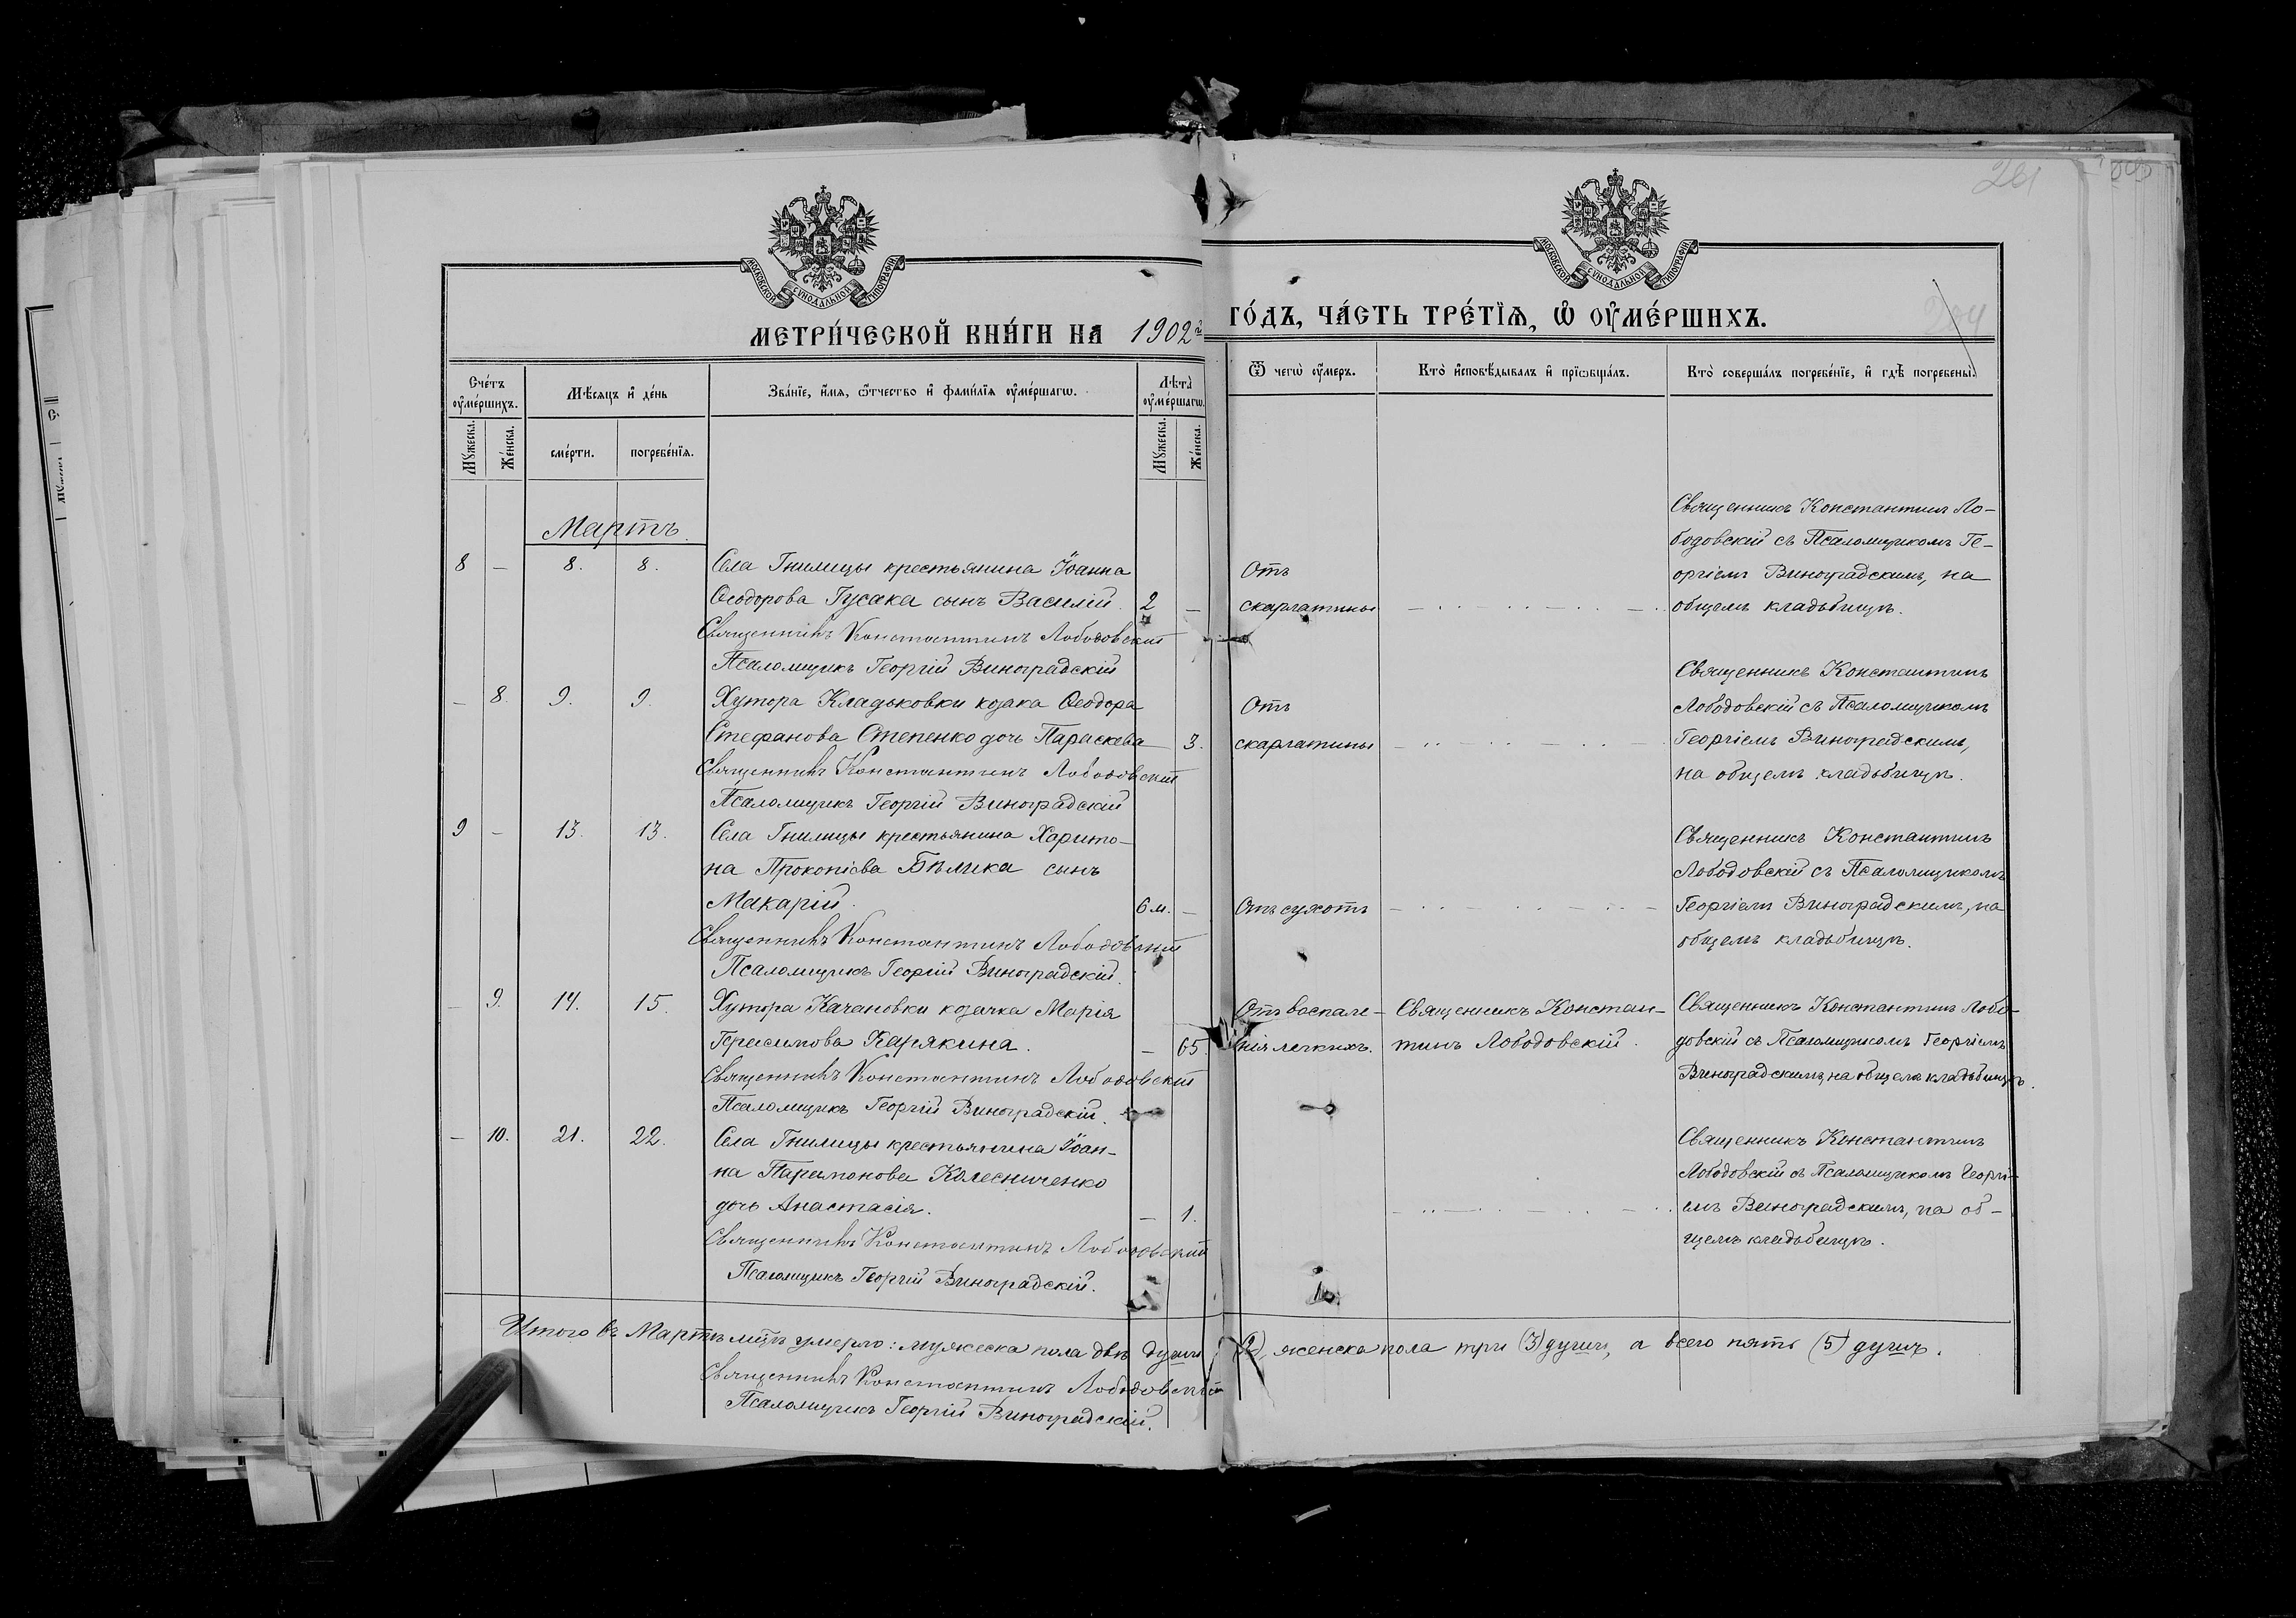 261
МОСКОВСКОЙ СУНОДАЛЬНОЙ ТИПОГРАФІИ
МОСКОВСКОЙ СУНОДАЛЬНОЙ ТИПОГРАФІИ
МЕТРИ́ЧЕСКОЙ КНИ́ГИ НА 1902й ГО́ДЪ, ЧА́СТЬ ТРЕ́ТЇѦ, Ѡ҆ ОУ҆МЕ́РШИХЪ.
204
Сче́тъ оу҆ме́ршихъ.
Мѣ́сяцъ и҆ де́нь
Зва́нїе, и҆́мѧ, ѻ҆́тчество и҆ фами́лїѧ оу҆ме́ршагѡ.
Лѣ́та оу҆ме́ршагѡ.
Ѿ чегѡ̀ оу҆́меръ.
Кто̀ и҆сповѣ́дывалъ и҆ прїѡбща́лъ.
Кто̀ соверша́лъ погребе́нїе, и҆ гдѣ̀ погребены̀.
Мꙋ́жеска.
Же́нска.
сме́рти.
погребе́нїѧ.
Мꙋ́жеска.
Же́нска.
Мартъ.
8 — 8. 8. Села Гнилицы крестьянина Іоанна
Ѳеодорова Гусака сынъ Василій. 2 —
Священникъ Константинъ Лободовскій
Псаломщикъ Георгій Виноградскій
Отъ
скарлатины
Священникъ Константинъ Ло-
бодовскій съ Псаломщикомъ Ге-
оргіемъ Виноградскимъ, на
общемъ кладьбищѣ.
— 8. 9. 9. Хутора Кладьковки козака Ѳеодора
Стефанова Степенко дочь Параскева — 3.
Священникъ Константинъ Лободовскій
Псаломщикъ Георгій Виноградскій
Отъ
скарлатины
Священникъ Константинъ
Лободовскій съ Псаломщикомъ
Георгіемъ Виноградскимъ,
на общемъ кладьбищѣ.
9 — 13. 13. Села Гнилицы крестьянина Харито-
на Прокопіева Бѣлика сынъ
Макарій. 6 м. —
Священникъ Константинъ Лободовскій
Псаломщикъ Георгій Виноградскій.
Отъ сухотъ
Священникъ Константинъ
Лободовскій съ Псаломщикомъ
Георгіемъ Виноградскимъ, на
общемъ кладьбищѣ.
— 9. 14. 15. Хутора Качановки козачка Марія
Герасимова Карякина. — 65.
Священникъ Константинъ Лободовскій
Псаломщикъ Георгій Виноградскій.
Отъ воспале-
нія легкихъ.
Священникъ Констан-
тинъ Лободовскій.
Священникъ Константинъ Лобо-
довскій съ Псаломщикомъ Георгіемъ
Виноградскимъ, на общемъ кладьбищѣ.
— 10. 21. 22. Села Гнилицы крестьянина Іоан-
на Парамонова Колесниченко
дочь Анастасія. — 1.
Священникъ Константинъ Лободовскій
Псаломщикъ Георгій Виноградскій.
Священникъ Константинъ
Лободовскій съ Псаломщикомъ Георгі-
емъ Виноградскимъ, на об-
щемъ кладьбищѣ.
Итого въ Мартѣ мцѣ умерло: мужеска пола двѣ души (2), женска пола три (3) души, а всего пять (5) душъ.
Священникъ Константинъ Лободовскій
Псаломщикъ Георгій Виноградскій.